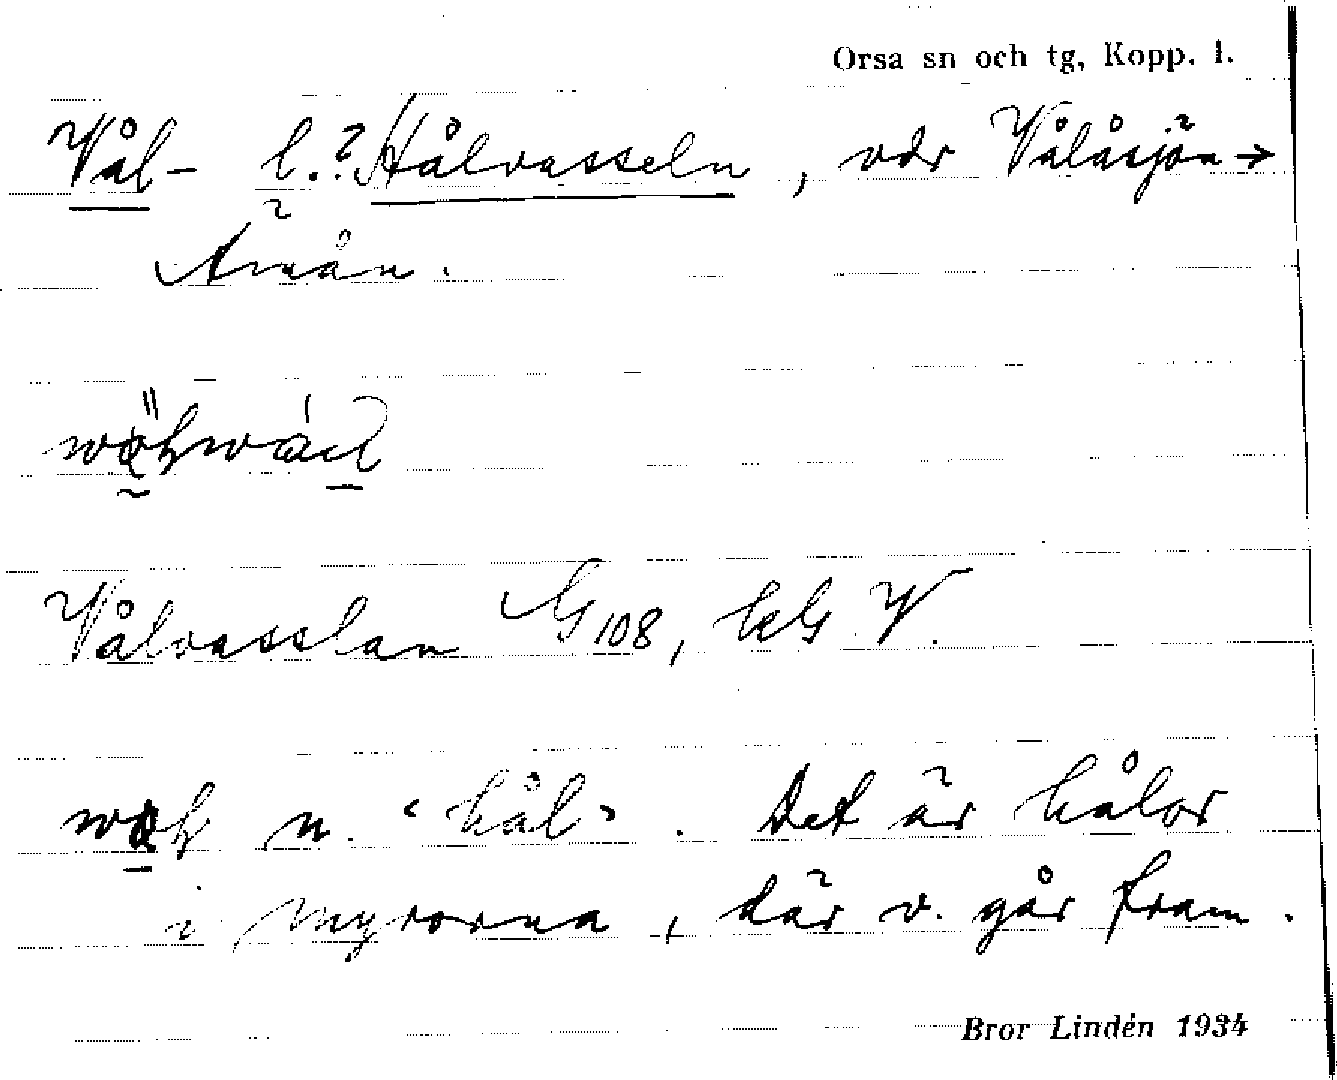 Orsa sn och tg, Kopp. l.
Vål- l.? Hålvasseln, vdr Vålåsjön →
Åmån.
Vålvasslan G 108, kbl V.
n. "hål". Det är hålor
i myrorna, där v. går fram.
Bror Lindén 1934